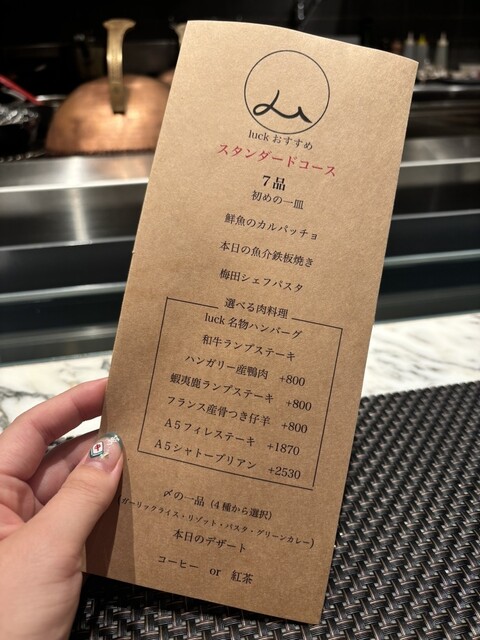 luck おすすめ
スタンダードコース
7品
初めの一皿
鮮魚のカルパッチョ
本日の魚介鉄板焼き
梅田シェフパスタ
選べる肉料理
luck 名物ハンバーグ
和牛ランプステーキ
ハンガリー産鴨肉 +800
蝦夷鹿ランプステーキ +800
フランス産骨つき仔羊 +800
A5フィレステーキ +1870
A5シャトーブリアン +2530
〆の一品（4種から選択）
(ガーリックライス・リゾット・パスタ・グリーンカレー)
本日のデザート
コーヒー or 紅茶